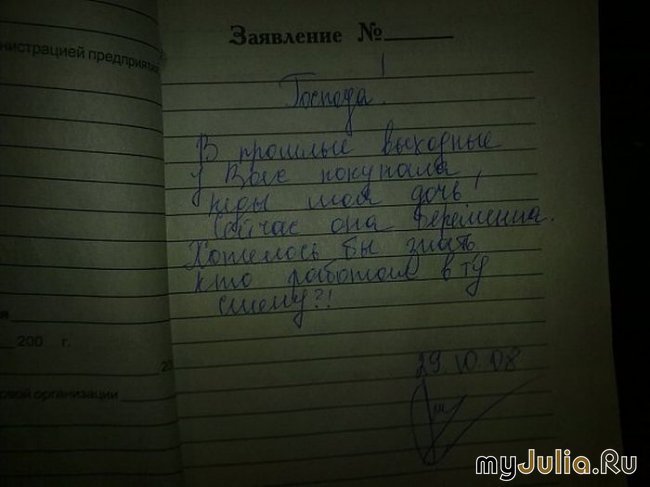 Заявление №
нистрацией предприя
Господа!
В прошлые выходные
у Вас покупала
кеды моя дочь!
Сейчас она беременна.
Хотелось бы знать
кто работал в ту
смену?!
200 г.
20
вой организации
29.10.08
myJulia.Ru